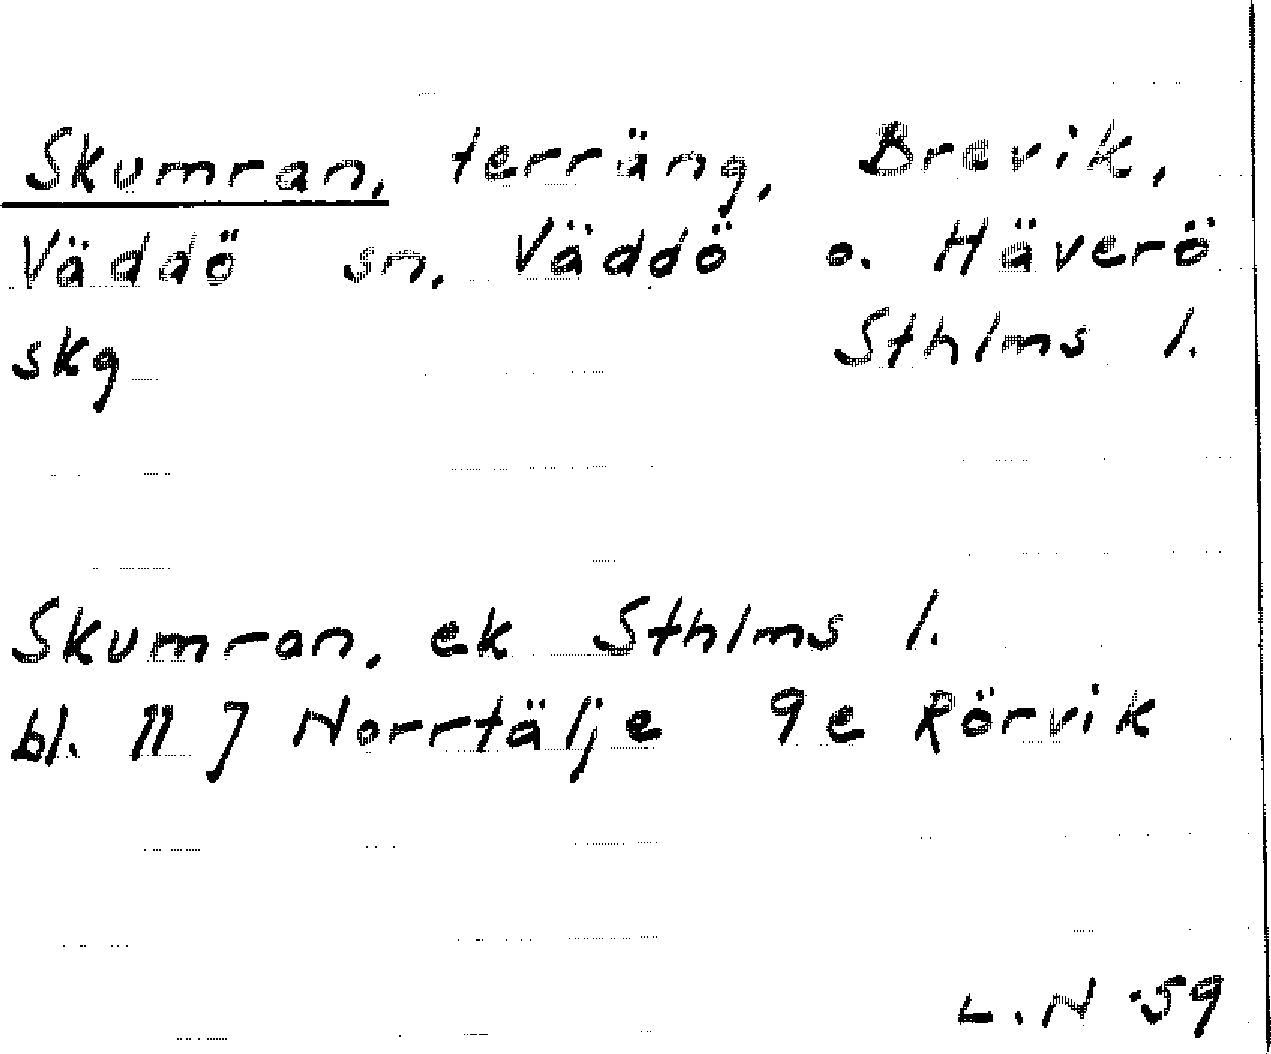 Skumran, terräng, Brevik,
Väddö sn. Väddö o. Häverö
skg Sthlms l.
Skumran. ek Sthlms l.
bl. 11 J Norrtälje 9e Rörvik
L. N -59